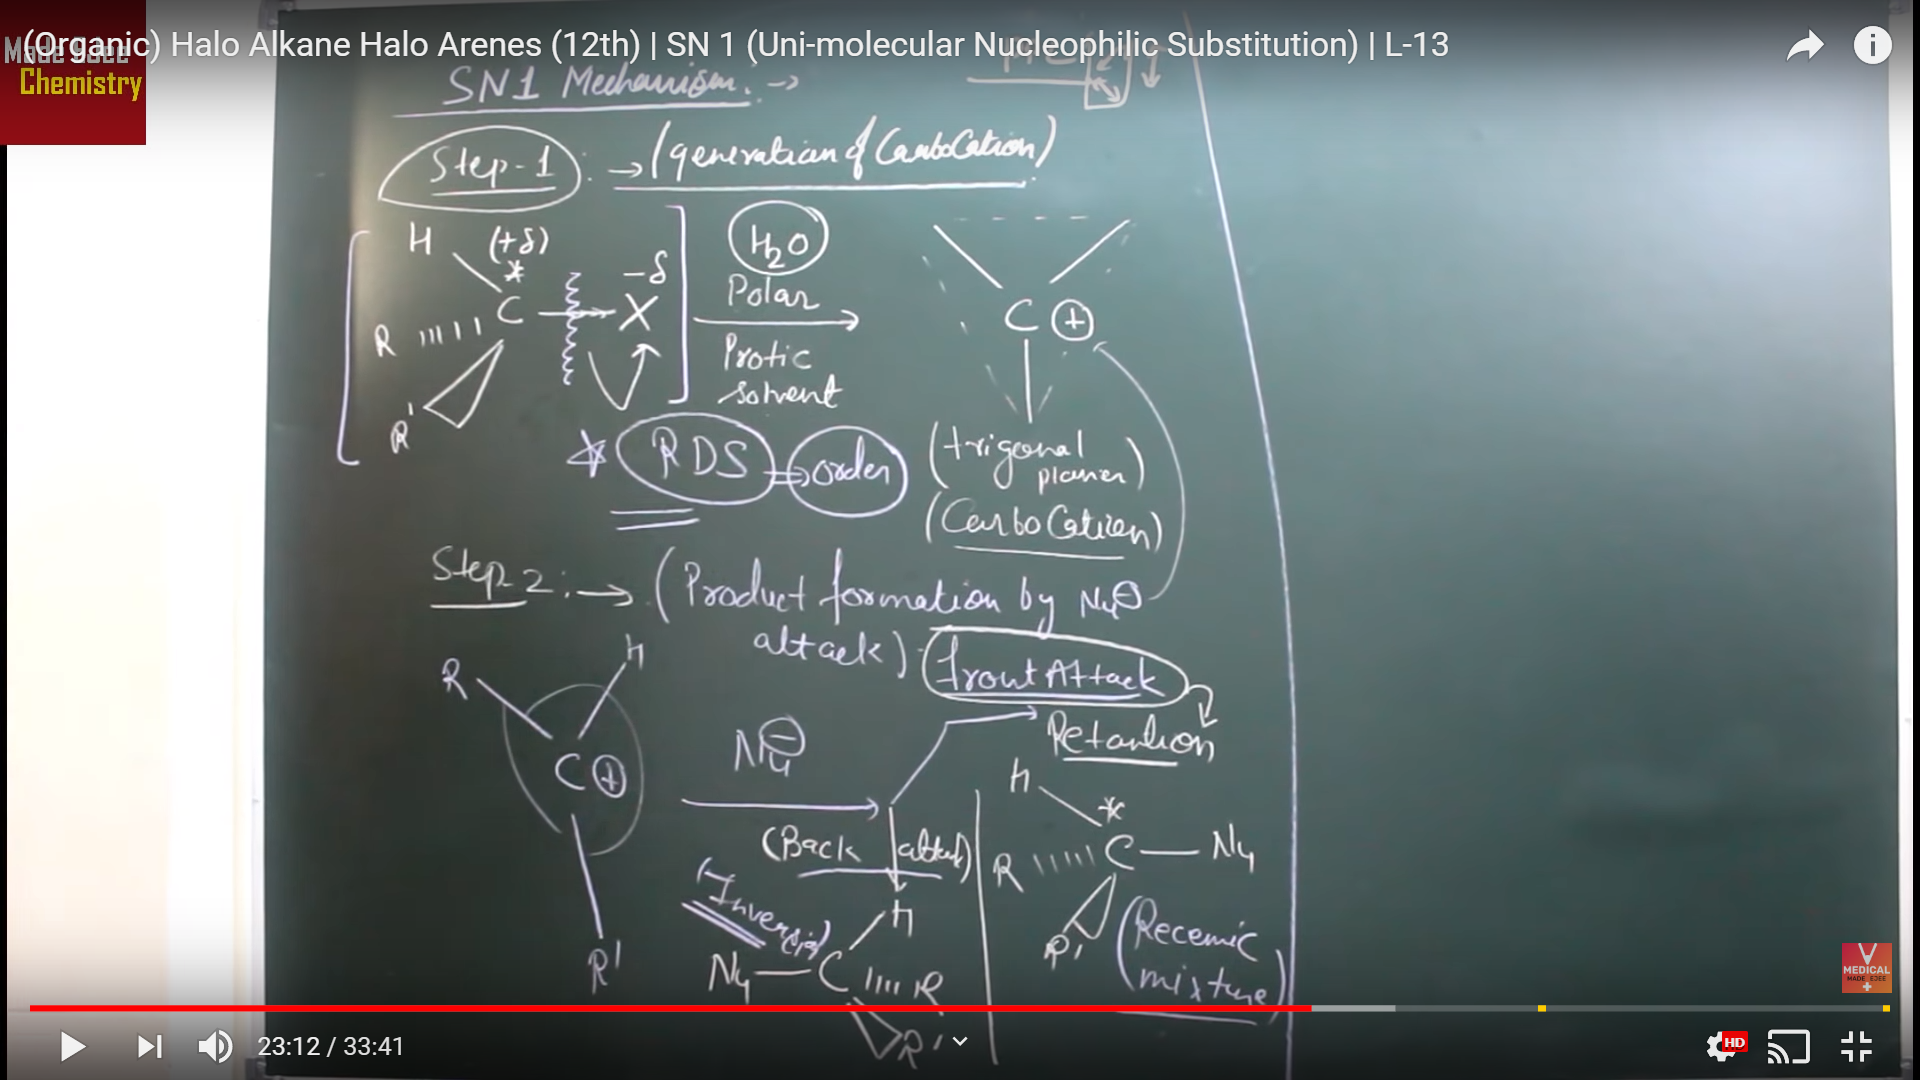 (Organic) Halo Alkane Halo Arenes (12th) | SN 1 (Uni-molecular Nucleophilic Substitution) | L-13
Chemistry
SN1 Mechanism:→
Step-1 :→ (generation of CarboCation)
H (+δ)
* -δ
C X
R
R'
H2O
Polar
Protic
solvent
C ⊕
* RDS ⇒ order
(trigonal
planer)
(CarboCation)
Step 2:→ (Product formation by Nu⊖
attack)
front Attack
Retantion
R H
C ⊕
R'
Nu⊖
(Back attack)
(Inversion)
H
Nu—C R
R'
H *
R C — Nu
R'
(Recemic
mixture)
MEDICAL
MADE EJEE
23:12 / 33:41
HD